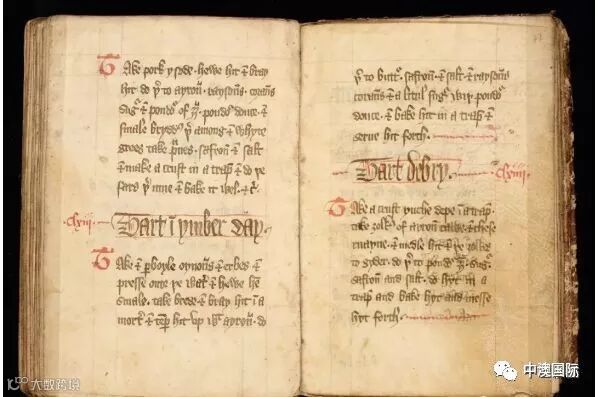 Take pork y sode. hewe hit & bray
hit do yͬ to ayroun. raysouns. corans
sugͬ & poudͬ of gyngͬ. poudͬ douce. &
smale bryddes yͬ among & whyte
grees take prunes. safroun & salt
& make a crust in a trap & do ye
fars yͬ inne & bake it wel. & cͬ.
Clxiij Tart ī ymber day.
Take & ꝑboyle oynouns & erbes &
presse oute ye watͬ & hewe hē
smale. take brede & bray hit ī a
mortͬ & temꝑ hit up wͭ ayroun. do
yͬ to buttͬ. safroun & salt & raysouns
corans & a litel sugͬ wiy poudͬ
douce. & bake hit in a trap &
serve hit forth.
Tart de bry. Clxiiij
Take a crust ynche depe ī a trap.
take zolkͤ of ayroun rawe & chese
ruayne. & medle hit & ye zolkes
to gyder. do yͬ to poudͬ gyngͬ. sugͬ.
safroun and salt. do hyt in a
trap and bake hyt and messe
hyt forth.
大数跨境
中澳国际